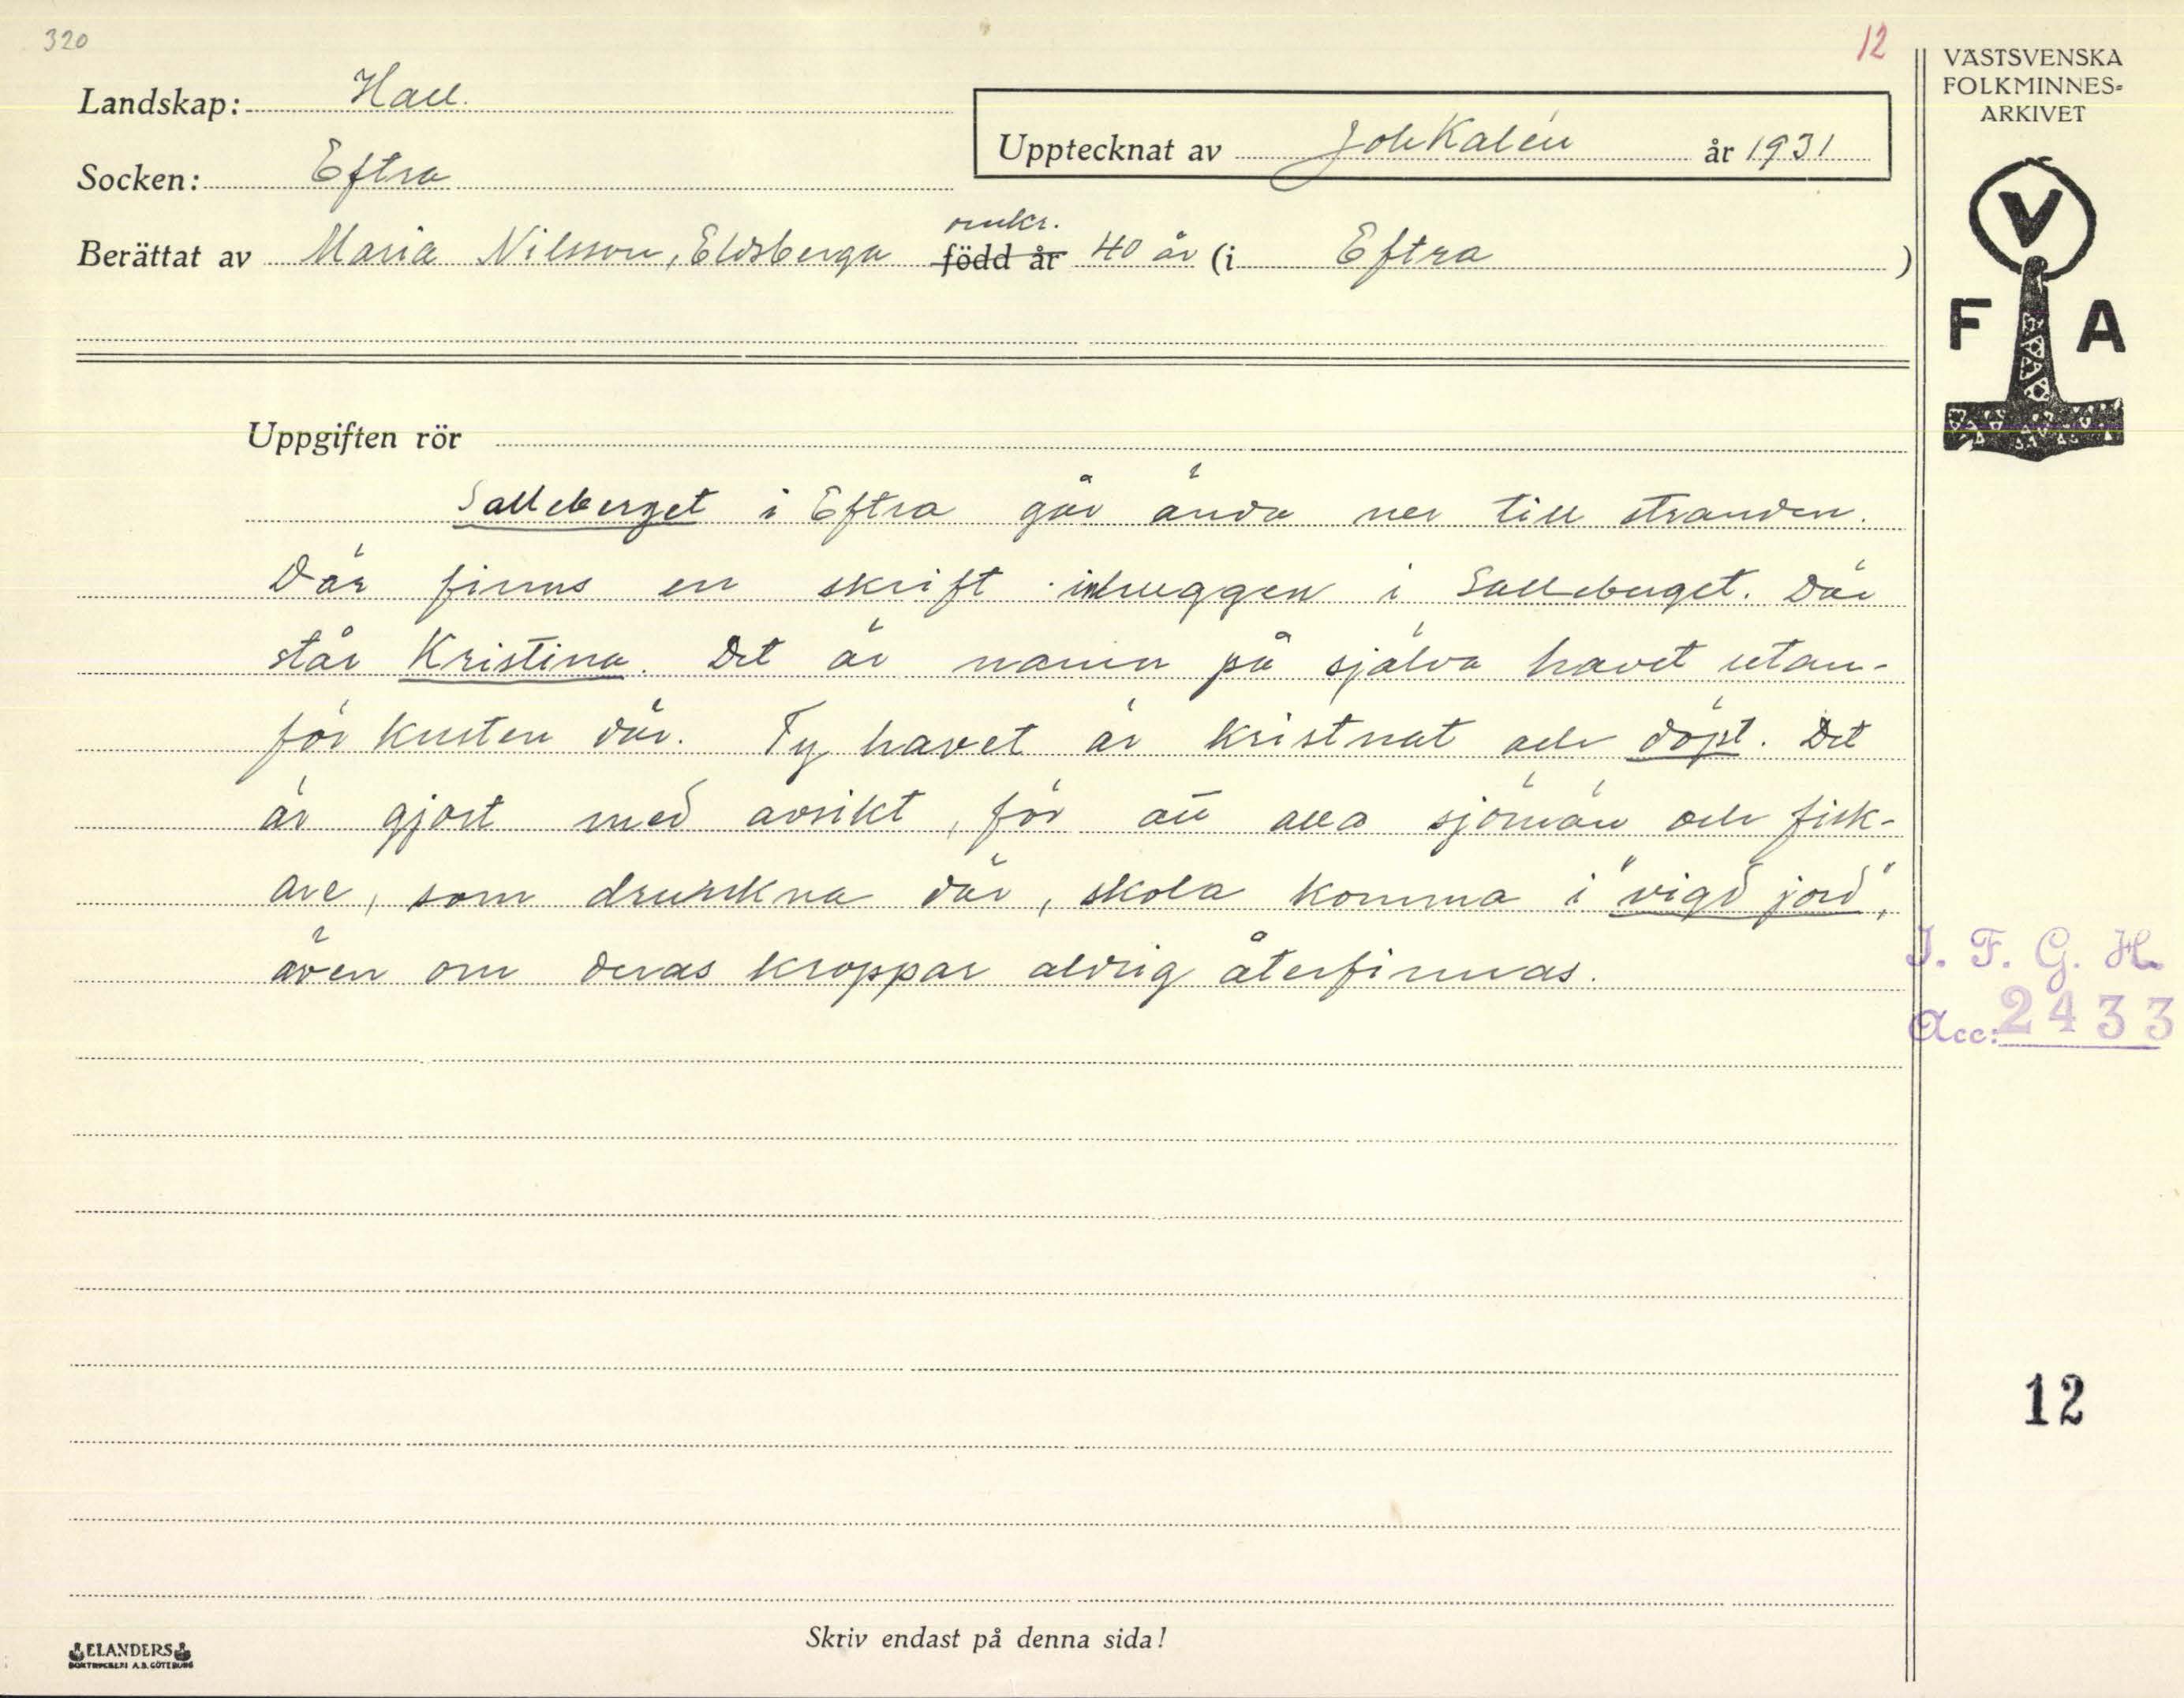 320
12
Landskap: Hall.
Upptecknat av Joh Kalén år 1931
Socken: Eftra
omkr.
Berättat av Maria Nilsson, Eldsberga född år 40 år (i Eftra )
Uppgiften rör
Salleberget i Eftra går ända ner till stranden.
Där finns en skrift inhuggen i Salleberget. Där
står Kristina. Det är namn på själva havet utan-
för kusten där. Ty havet är kristnat och döpt. Det
är gjort med avsikt, för att alla sjömän och fisk-
are, som drunkna där, skola komma i "vigd jord",
även om deras kroppar aldrig återfinnas.
Skriv endast på denna sida!
ELANDERS
BOKTRYCKERI A.B. GÖTEBORG
VÄSTSVENSKA
FOLKMINNES-
ARKIVET
V
F A
I. F. G. H.
Acc: 2433
12